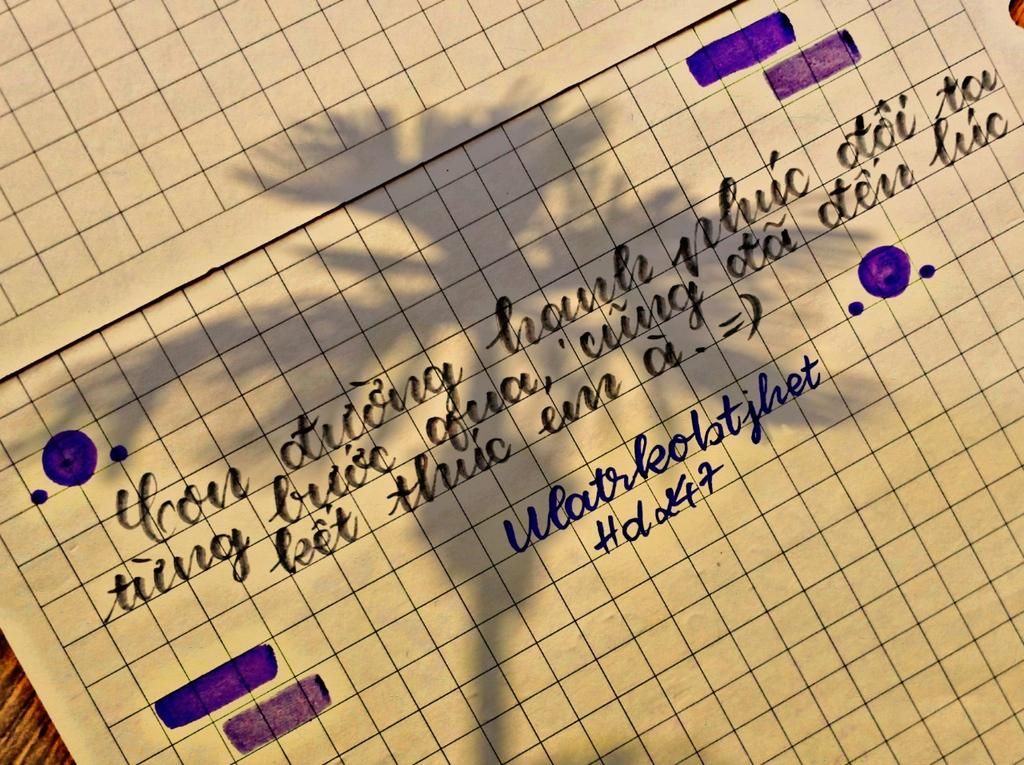 Con đường hạnh phúc đôi ta
từng bước qua, cũng đã đến lúc
kết thúc em à. =)
Hdx47